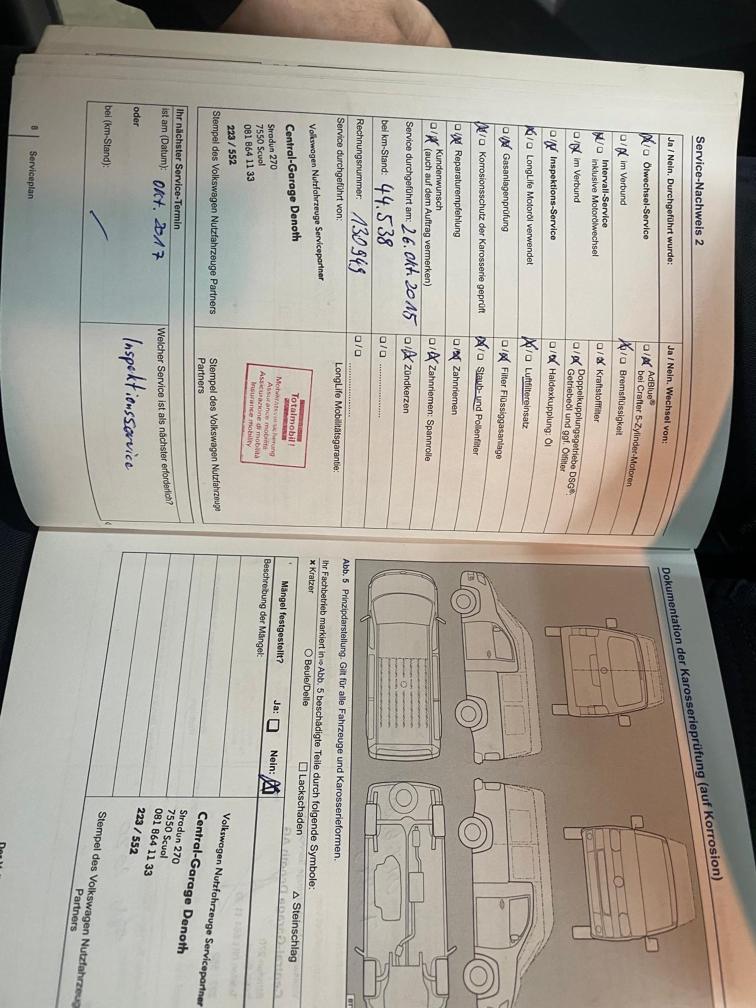 Service-Nachweis 2
Ja / Nein. Durchgeführt wurde:
Ölwechsel-Service
im Verbund
Intervall-Service
inklusive Motorölwechsel
im Verbund
Inspektions-Service
LongLife Motoröl verwendet
Gasanlagenprüfung
Korrosionsschutz der Karosserie geprüft
Reparaturempfehlung
Kundenwunsch
(auch auf dem Auftrag vermerken)
Service durchgeführt am: 26. Okt. 2015
bei km-Stand: 44.538
Rechnungsnummer: 130949
Service durchgeführt von:
Volkswagen Nutzfahrzeuge Servicepartner
Central-Garage Denoth
Stradun 270
7550 Scuol
081 864 11 33
223 / 552
Stempel des Volkswagen Nutzfahrzeuge Partners
Ja / Nein. Wechsel von:
AdBlue®
bei Crafter 5-Zylinder-Motoren
Bremsflüssigkeit
Kraftstofffilter
Doppelkupplungsgetriebe DSG®:
Getriebeöl und ggf. Ölfilter
Haldexkupplung: Öl
Luftfiltereinsatz
Filter Flüssiggasanlage
Staub- und Pollenfilter
Zahnriemen
Zahnriemen: Spannrolle
Zündkerzen
LongLife Mobilitätsgarantie:
Totalmobil!
Mobilitätsversicherung
Assurance mobilité
Assicurazione di mobilità
Insurance mobility
Stempel des Volkswagen Nutzfahrzeuge
Partners
Ihr nächster Service-Termin
ist am (Datum): Okt. 2017
oder
bei (km-Stand):
Welcher Service ist als nächster erforderlich?
Inspektionsservice
8 Serviceplan
Dokumentation der Karosserieprüfung (auf Korrosion)
Abb. 5 Prinzipdarstellung. Gilt für alle Fahrzeuge und Karosserieformen.
Ihr Fachbetrieb markiert in ⇒ Abb. 5 beschädigte Teile durch folgende Symbole:
× Kratzer ○ Beule/Delle □ Lackschaden △ Steinschlag
Mängel festgestellt? Ja: Nein:
Beschreibung der Mängel:
Volkswagen Nutzfahrzeuge Servicepartner
Central-Garage Denoth
Stradun 270
7550 Scuol
081 864 11 33
223 / 552
Stempel des Volkswagen Nutzfahrzeug
Partners